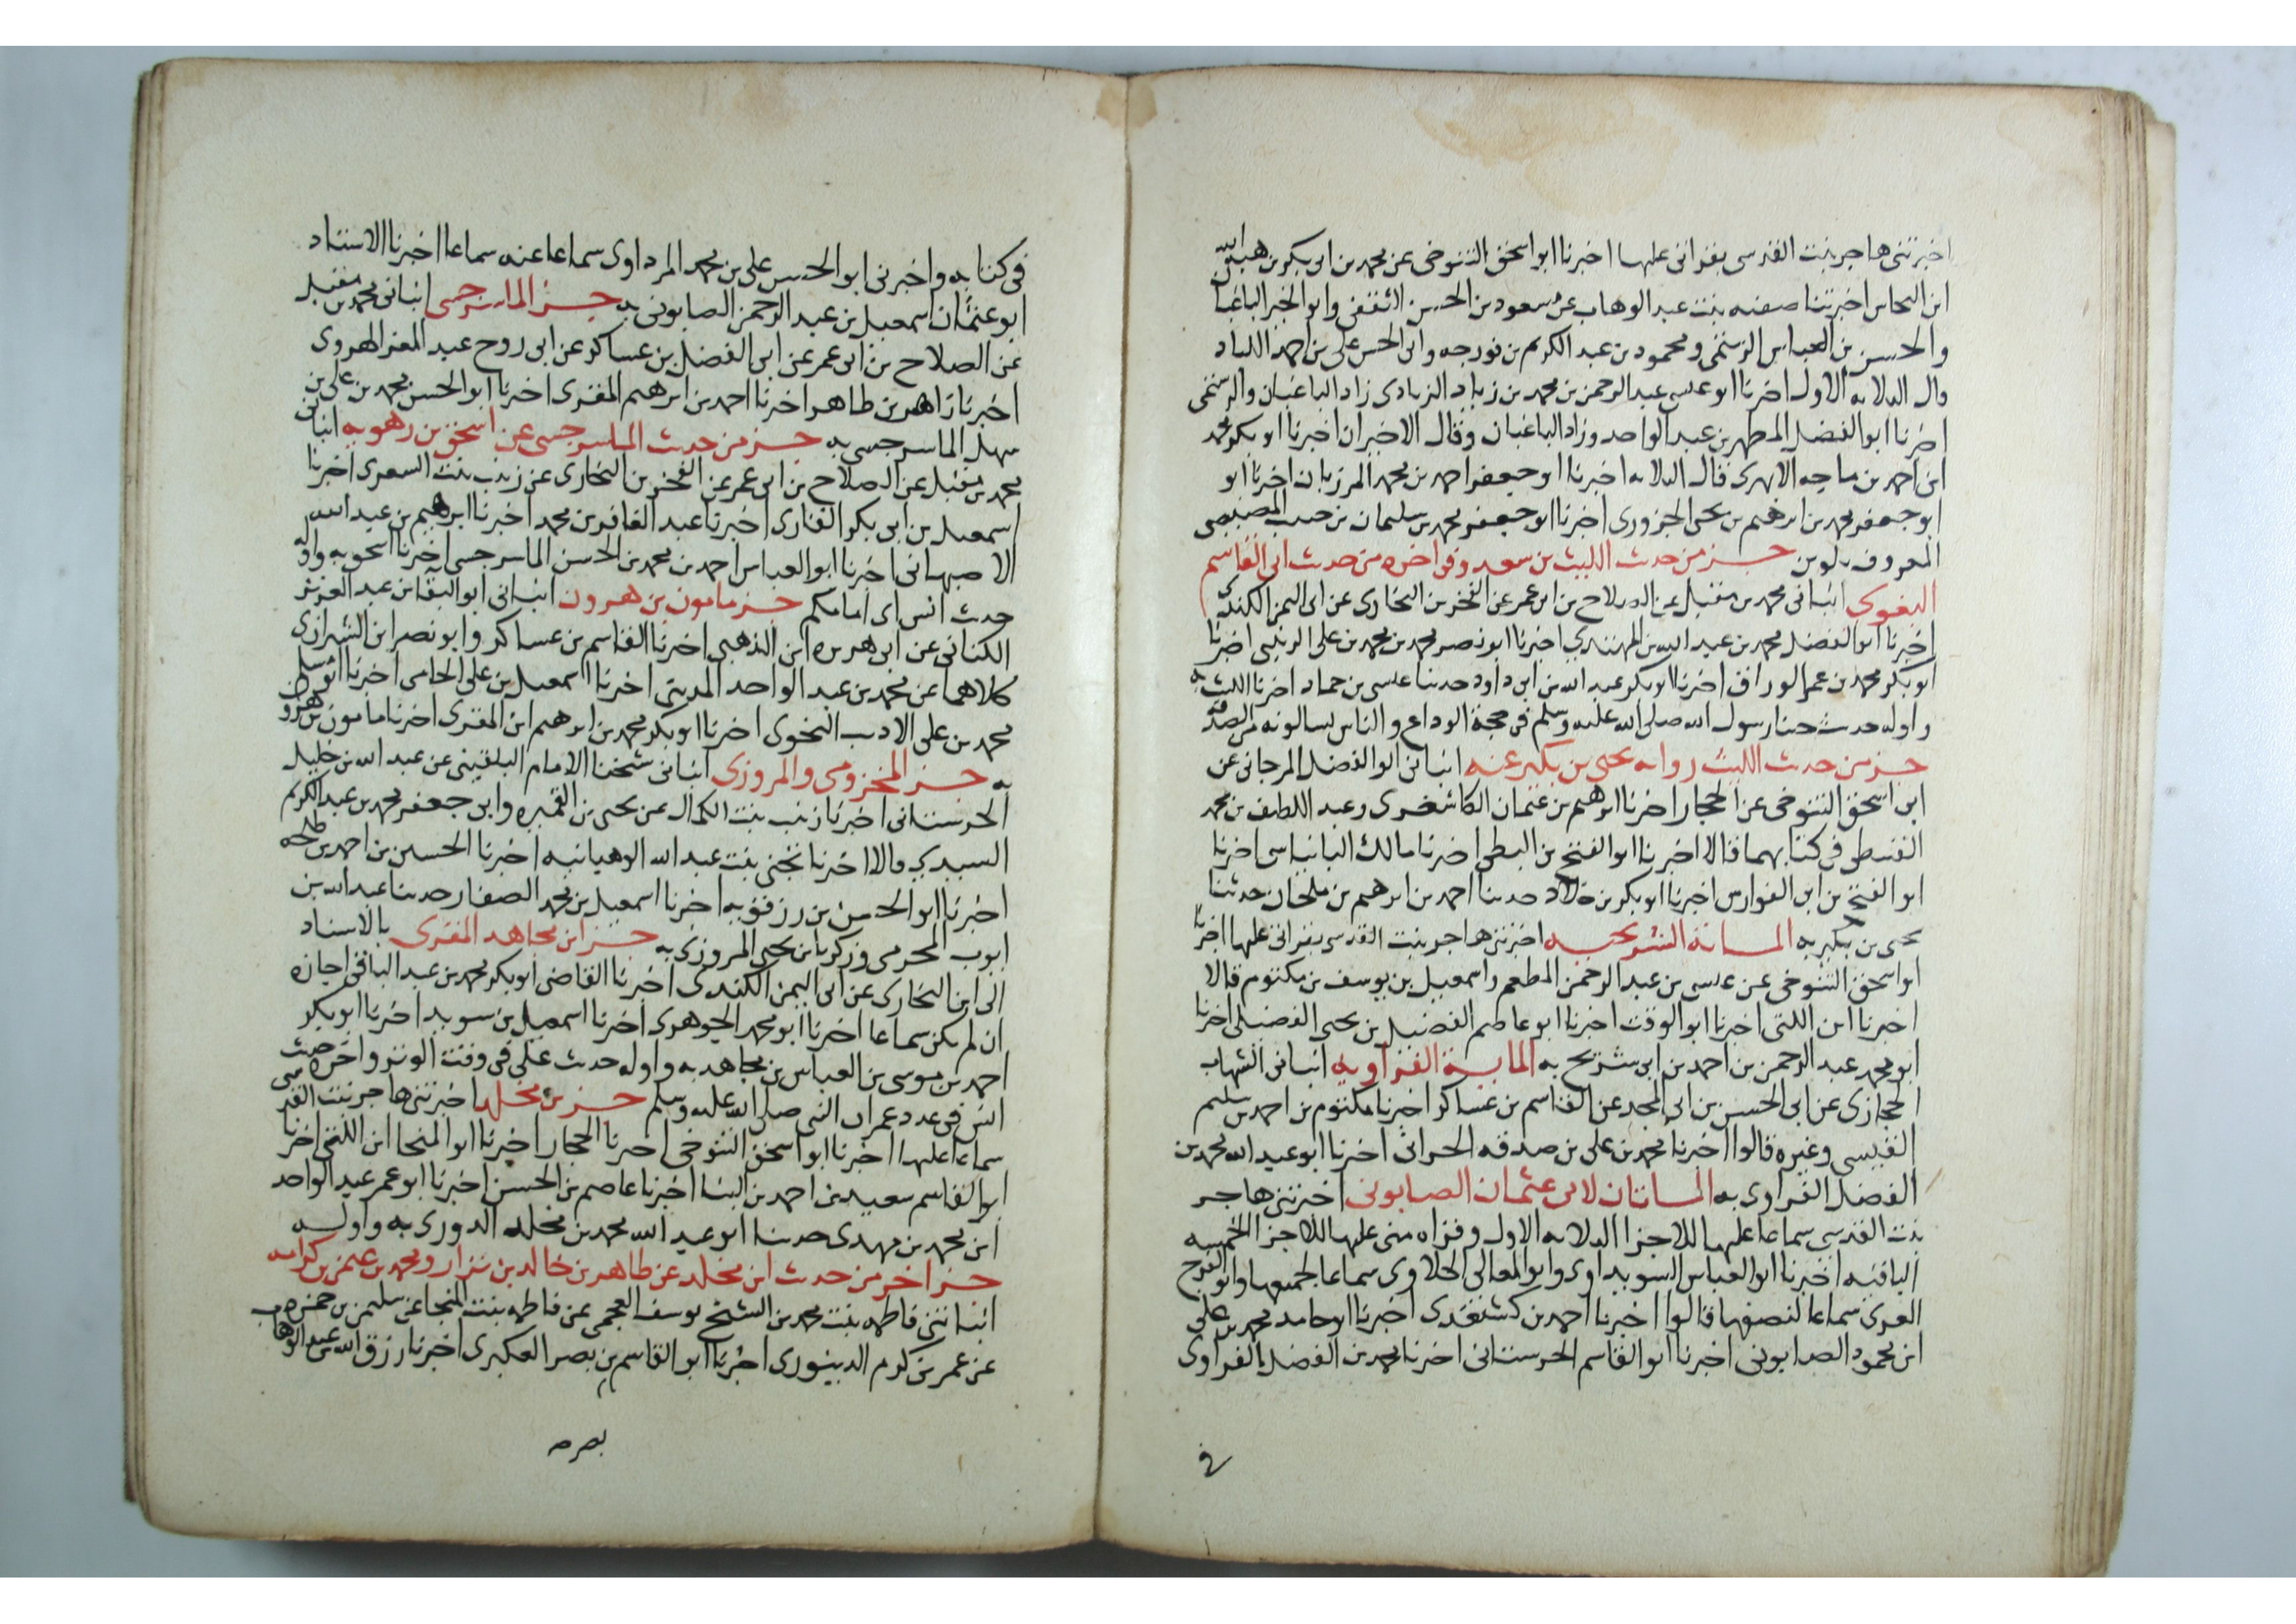 اخبرتني هاجر بنت القدسي بقراتي عليها اخبرنا ابو اسحق التنوخي عن محمد بن ابي بكر بن هبة الله
ابن النحاس اخبرتنا صفيه بنت عبد الوهاب عن مسعود بن الحسن الثقفي وابو الخير الباغبان
والحسن بن العباس الرستمي ومحمود بن عبد الكريم بن فورجه وابي الحسن علي بن احمد اللباد
قال الثلاثه الاول اخبرنا ابو عيسى عبد الرحمن بن محمد بن زياد الزيادي زاد الباغبان والرستمي
اخبرنا ابو الفضل المطهر بن عبد الواحد وزاد الباغبان وقال الاخيران اخبرنا ابو بكر محمد
ابن احمد بن ماجه الابهري قال الثلاثه اخبرنا ابو جعفر احمد بن محمد المرزبان اخبرنا ابو
ابو جعفر محمد بن ابرهيم بن يحيى الحزوري اخبرنا ابو جعفر محمد بن سليمان بن حبيب المصيصي
المعروف بلوين جزء من حديث الليث بن سعد وفي اخره من حديث ابي القاسم
البغوي انباني محمد بن مقبل عن الصلاح بن ابي عمر عن الفخر بن البخاري عن ابي اليمن الكندي
اخبرنا ابو الفضل محمد بن عبد الله بن المهتدي اخبرنا ابو نصر محمد بن محمد بن علي الزينبي اخبرنا
ابو بكر محمد بن عمر الوراق اخبرنا ابو بكر عبد الله بن ابي داود حدثنا عيسى بن حماد اخبرنا الليث به
واوله حديث جئنا رسول الله صلى الله عليه وسلم في حجة الوداع والناس يسالونه من الصدقة
جزء من حديث الليث رواه يحيى بن بكير عنه انباني ابو الفضل المرجاني عن
ابن اسحق التنوخي عن الحجار اخبرنا ابرهيم بن عثمان الكاشغري وعبد اللطيف بن محمد
القبيطي في كتابهما قالا اخبرنا ابو الفتح بن البطي اخبرنا مالك البانياسي اخبرنا
ابو الفتح بن ابي الفوارس اخبرنا ابو بكر بن خلاد حدثنا احمد بن ابرهيم بن ملحان حدثنا
يحيى بن بكير به المائة الشريحيه اخبرتني هاجر بنت القدسي بقراتي عليها اخبرنا
ابو اسحق التنوخي عن عيسى بن عبد الرحمن المطعم واسمعيل بن يوسف بن مكتوم قالا
اخبرنا ابن اللتي اخبرنا ابو الوقت اخبرنا ابو عاصم الفضيل بن يحيى الفضيلي اخبرنا
ابو محمد عبد الرحمن بن احمد بن ابي شريح به الماية الفراويه انباني الشهاب
الحجازي عن ابي الحسن بن ابي المجد عن القاسم بن عساكر اخبرنا مكتوم بن احمد بن سليم
القيسي وغيره قالوا اخبرنا محمد بن علي بن صدقه الحراني اخبرنا ابو عبد الله محمد بن
الفضل الفراوي به المائتان لابي عثمان الصابوني اخبرتني هاجر
بنت القدسي سماعا عليها للاجزا الثلاثه الاول وقراه مني عليها للاجزا الخمسه
الباقيه اخبرنا ابو العباس السويداوي وابو المعالي الحلاوي سماعا لجميعها وابو الفرج
الغزي سماعا لنصفها قالوا اخبرنا احمد بن كشتغدي اخبرنا ابو حامد محمد بن علي
ابن محمود الصابوني اخبرنا ابو القاسم الحرستاني اخبرنا محمد بن الفضل الفراوي
في
في كتابه واخبرني ابو الحسن علي بن محمد المرداوي سماعا عنه سماعا اخبرنا الاستاد
ابو عثمان اسمعيل بن عبد الرحمن الصابوني به جزء الماسرجسي انباني محمد بن مقبل
عن الصلاح بن ابي عمر عن ابي الفضل بن عساكر عن ابي روح عبد المعز الهروي
اخبرنا زاهر بن طاهر اخبرنا احمد بن ابرهيم المقري اخبرنا ابو الحسن محمد بن علي بن
سهل الماسرجسي به جزء من حديث الماسرجسي عن اسحق بن رهويه انباني
محمد بن مقبل عن الصلاح بن ابي عمر عن الفخر بن البخاري عن زينب بنت السعري اخبرنا
اسمعيل بن ابي بكر القاري اخبرنا عبد الغافر بن محمد اخبرنا ابرهيم بن عبد الله
الاصبهاني اخبرنا ابو العباس احمد بن محمد بن الحسن الماسرجسي اخبرنا اسحق به واوله
حديث انس اي امامكم جزء مامون بن هرون انباني ابو البقا بن عبد العزيز
الكناني عن ابي هريره ابن الذهبي اخبرنا القاسم بن عساكر وابو نصر ابن الشيرازي
كلاهما عن محمد بن عبد الواحد المديني اخبرنا اسمعيل بن علي الحمامي اخبرنا ابو مسلم
محمد بن علي الاديب النحوي اخبرنا ابو بكر محمد بن ابرهيم ابن المقري اخبرنا مامون بن هرون
به جزء المخزومي والمروزي انباني شيخنا الامام البلقيني عن عبد الله بن خليل
الحرستاني اخبرنا زينب بنت الكمال عن يحيى بن القميره وابن جعفر محمد بن عبد الكريم
السيدي قالا اخبرنا تجني بنت عبد الله الوهبانيه اخبرنا الحسين بن احمد بن طلحه
اخبرنا ابو الحسن بن رزقويه اخبرنا اسمعيل بن محمد الصفار حدثنا عبد الله بن
ايوب المخرمي وزكريا بن يحيى المروزي به جزء ابن مجاهد المقري بالاسناد
الى ابن البخاري عن ابي اليمن الكندي اخبرنا القاضي ابو بكر محمد بن عبد الباقي اجازه
ان لم يكن سماعا اخبرنا ابو محمد الجوهري اخبرنا اسمعيل بن سويد اخبرنا ابو بكر
احمد بن موسى بن العباس بن مجاهد به واوله حديث علي في وقت الوتر واخره حديث
انس في عدد عمر النبي صلى الله عليه وسلم جزء بن مخلد اخبرتني هاجر بنت القدسي
سماعا عليها اخبرنا ابو اسحق التنوخي اخبرنا الحجار اخبرنا ابو المنجا ابن اللتي اخبرنا
ابو القاسم سعيد بن احمد بن البنا اخبرنا عاصم بن الحسن اخبرنا ابو عمر عبد الواحد
ابن محمد بن مهدي حدثنا ابو عبد الله محمد بن مخلد الدوري به واوله
جزء اخر من حديث ابن مخلد عن طاهر بن خالد بن نزار ومحمد بن عثمن بن كرامه
انباتني فاطمه بنت محمد بن الشيخ يوسف العجمي عن فاطمه بنت المنجا عن سليمن بن حمزه
عن عمر بن كرم الدينوري اخبرنا ابو القاسم بن نصر العكبري اخبرنا رزق الله بن عبد الوهاب